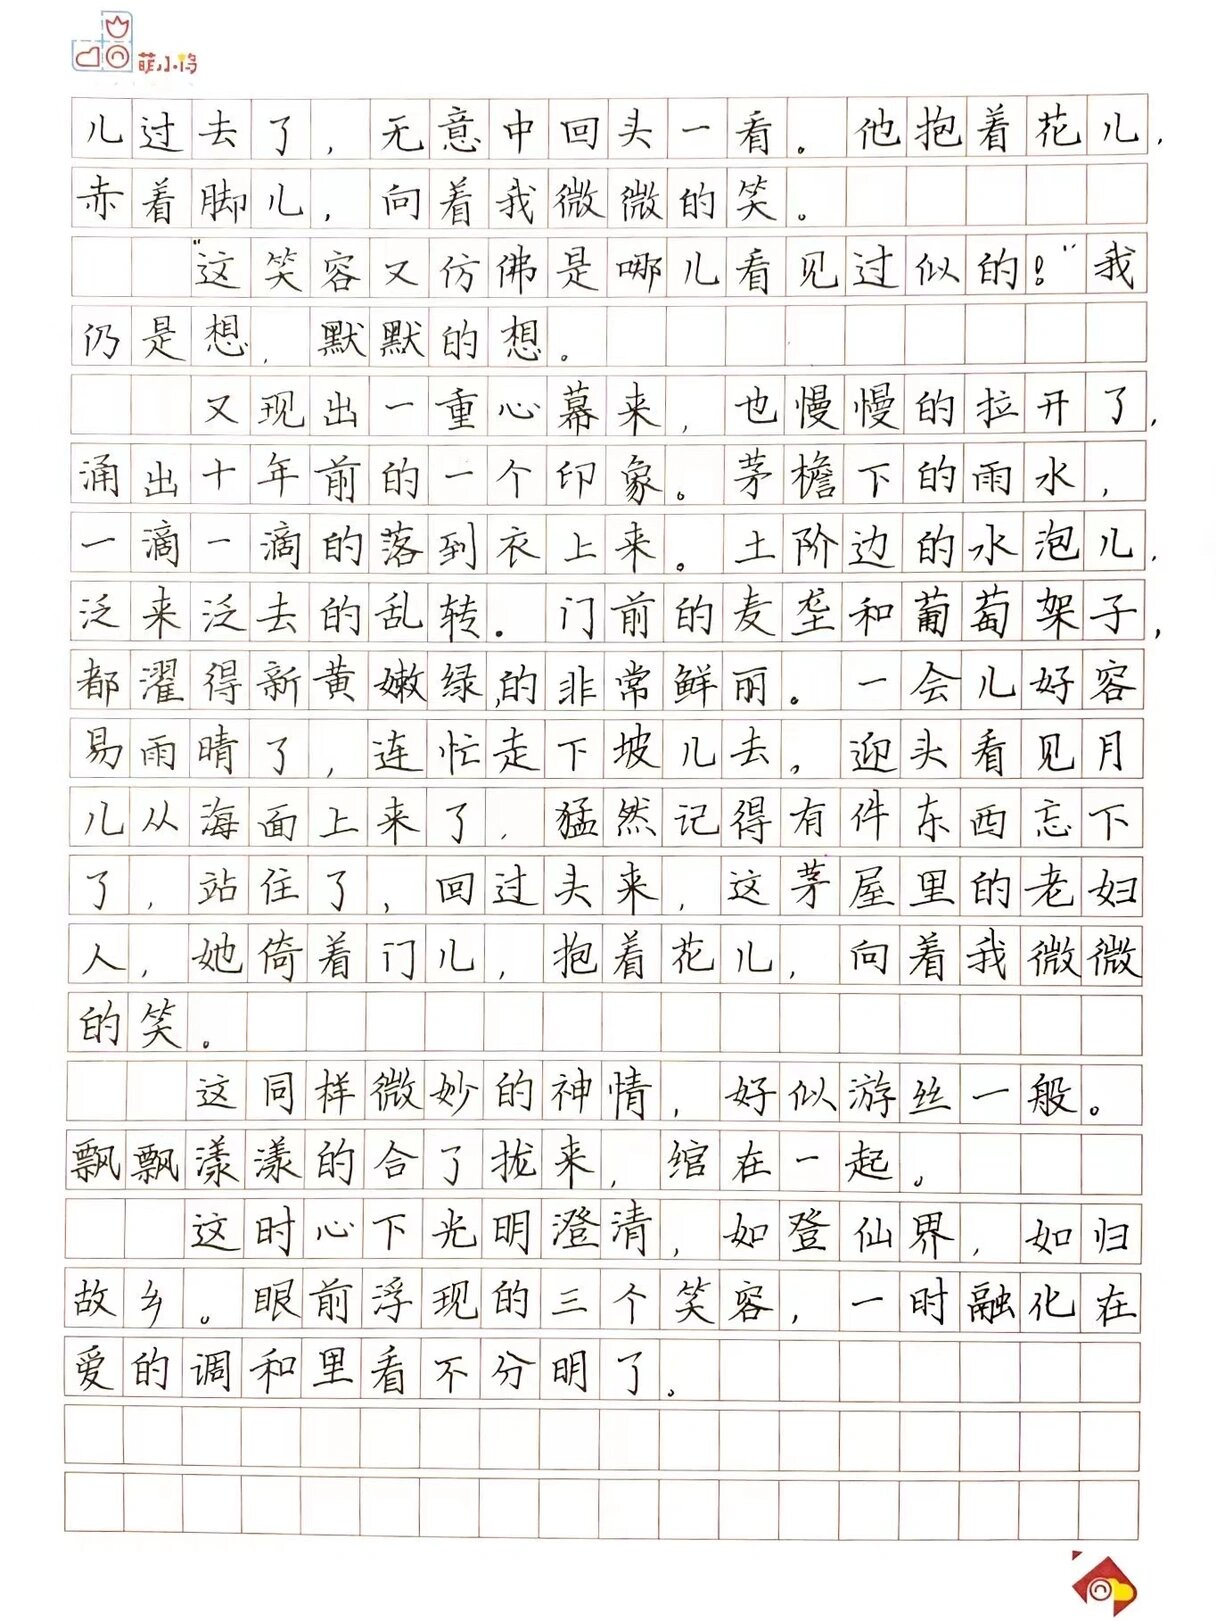 萌小鸽
儿过去了，无意中回头一看。他抱着花儿，
赤着脚儿，向着我微微的笑。
“这笑容又仿佛是哪儿看见过似的！”我
仍是想，默默的想。
又现出一重心幕来，也慢慢的拉开了，
涌出十年前的一个印象。茅檐下的雨水，
一滴一滴的落到衣上来。土阶边的水泡儿，
泛来泛去的乱转。门前的麦垄和葡萄架子，
都濯得新黄嫩绿的非常鲜丽。一会儿好容
易雨晴了，连忙走下坡儿去。迎头看见月
儿从海面上来了，猛然记得有件东西忘下
了，站住了，回过头来，这茅屋里的老妇
人，她倚着门儿，抱着花儿，向着我微微
的笑。
这同样微妙的神情，好似游丝一般。
飘飘漾漾的合了拢来，绾在一起。
这时心下光明澄清，如登仙界，如归
故乡。眼前浮现的三个笑容，一时融化在
爱的调和里看不分明了。